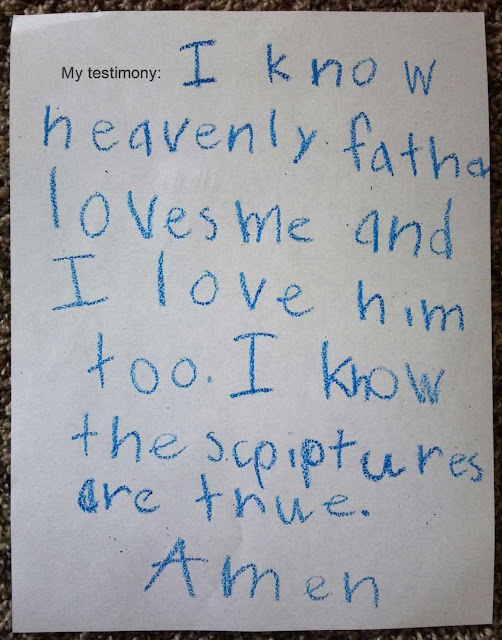 My testimony: I know
heavenly fatha
loves me and
I love him
too. I know
the scpiptures
are true.
Amen